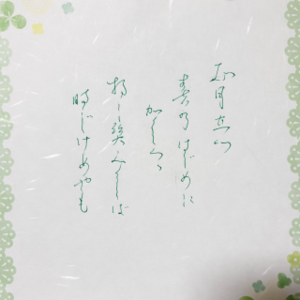 正月立つ
春乃はじめに
かくしつつ
相し笑みてば
時じけめやも